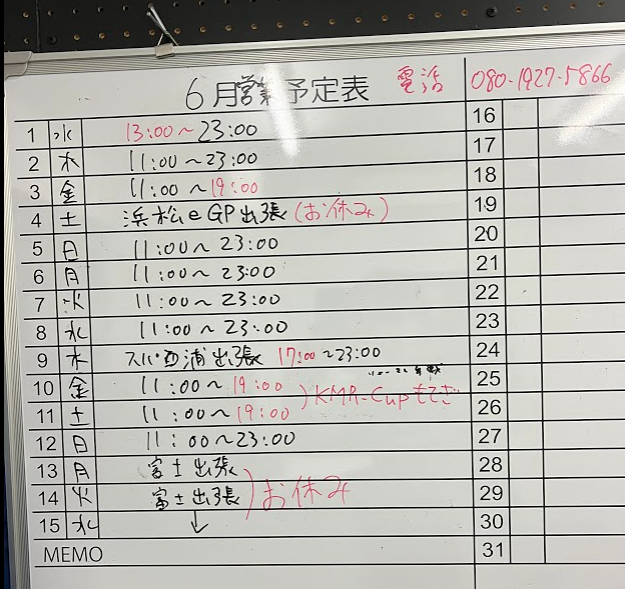 6月営業予定表 電話 080-1927-5866
1 水 13:00～23:00
2 木 11:00～23:00
3 金 11:00～19:00
4 土 浜松eGP出張 (お休み)
5 日 11:00～23:00
6 月 11:00～23:00
7 火 11:00～23:00
8 水 11:00～23:00
9 木 スパ西浦出張 17:00～23:00
10 金 11:00～19:00
KMR-Cupもてぎ
11 土 11:00～19:00
12 日 11:00～23:00
13 月 富士出張
お休み
14 火 富士出張
15 水 ↓
MEMO
16
17
18
19
20
21
22
23
24
25
26
27
28
29
30
31